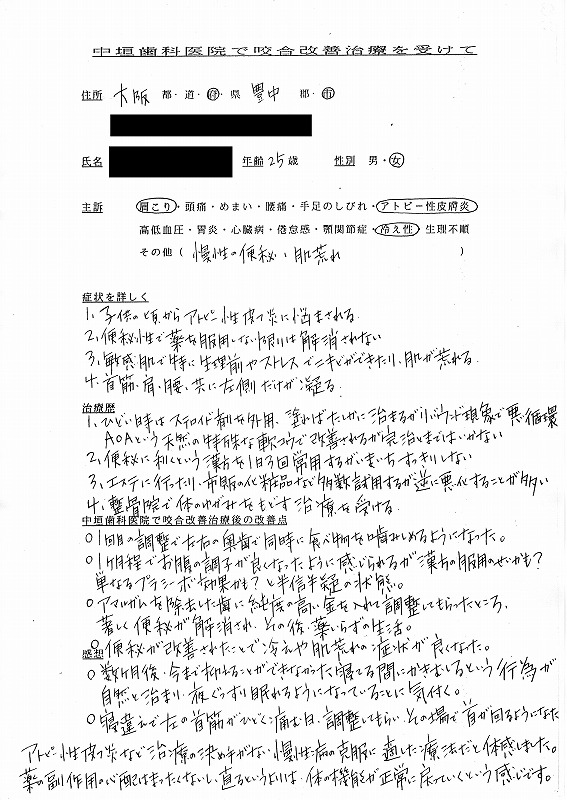 中垣歯科医院で咬合改善治療を受けて
住所 大阪 都・道・府・県 豊中 郡・市
氏名 年齢 25歳 性別 男・女
主訴 肩こり・頭痛・めまい・腰痛・手足のしびれ・アトピー性皮膚炎
高低血圧・胃炎・心臓病・倦怠感・顎関節症・冷え性・生理不順
その他( 慢性の便秘、肌荒れ )
症状を詳しく
1、子供の頃からアトピー性皮フ炎に悩まされる
2、便秘性で薬を服用しない限りは解消されない
3、敏感肌で特に生理前やストレスでニキビができたり、肌が荒れる
4、首筋、肩、腰、共に左側だけが凝る
治療歴
1、ひどい時はステロイド剤を外用、塗ればたしかに治まるがリバウンド現象で悪循環
AOAという天然の特殊な軟コウで改善されるが完治とまではいかない
2、便秘に利くという漢方を1日3回常用するがいまいちすっきりしない
3、エステに行ったり、市販の化粧品など多数試用するが逆に悪化することが多い
4、整骨院で体のゆがみをもどす治療を受ける
中垣歯科医院で咬合改善治療後の改善点
○1回目の調整で左右の奥歯で同時に食べ物を噛みしめるようになった。
○1ヶ月程でお腹の調子が良くなったように感じられるが漢方の服用のせいかも?
単なるプラシーボ効果かも?と半信半疑の状態。
○アマルガムを除去した歯に純度の高い金を入れて調整してもらったところ、
著しく便秘が解消され、その後薬いらずの生活。
○便秘が改善されたことで冷えや肌荒れの症状が良くなった。
感想
○数ヶ月後、今まで抑えることができなかった寝てる間にかきむしるという行為が
自然と治まり、夜ぐっすり眠れるようになっていることに気付く。
○寝違えで左の首筋がひどく痛む日、調整してもらい、その場で首が回るようになた
アトピー性皮フ炎など治療の決め手がない慢性病の克服に適した療法だと体感しました。
薬の副作用の心配はまったくないし、直るというよりは、体の機能が正常に戻っていくという感じです。